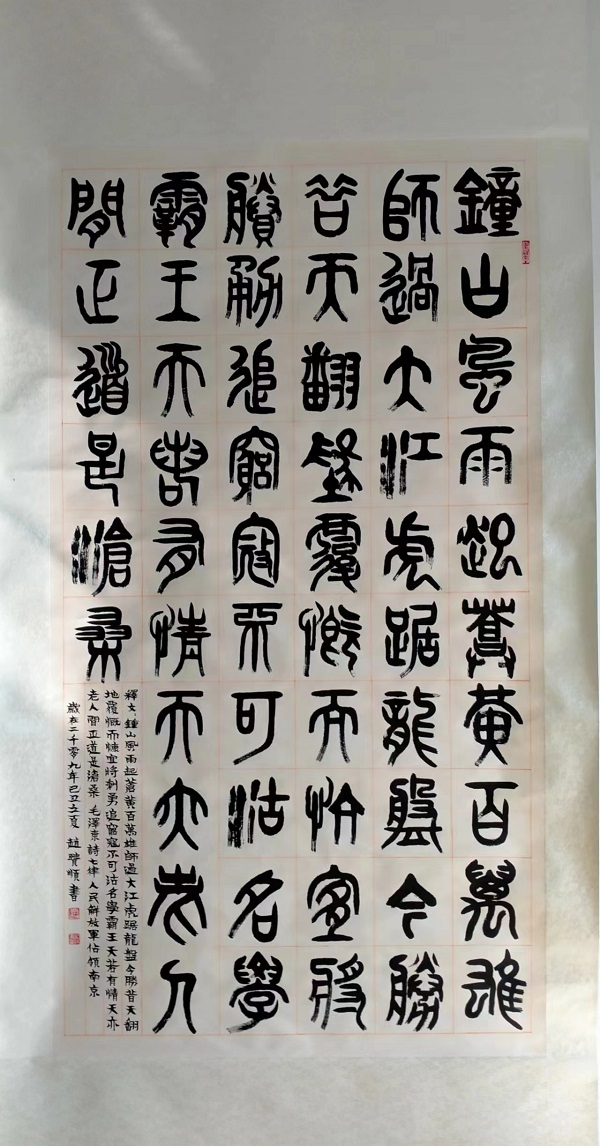 鐘山風雨起蒼黃百萬雄
師過大江虎踞龍盤今勝
昔天翻地覆慨而慷宜將
剩勇追窮寇不可沽名學
霸王天若有情天亦老人
間正道是滄桑
釋文：鐘山風雨起蒼黃百萬雄師過大江虎踞龍盤今勝昔天翻
地覆慨而慷宜將剩勇追窮寇不可沽名學霸王天若有情天亦
老人間正道是滄桑 毛澤東詩七律人民解放軍佔領南京
歲在二千零九年己丑立夏 趙順書